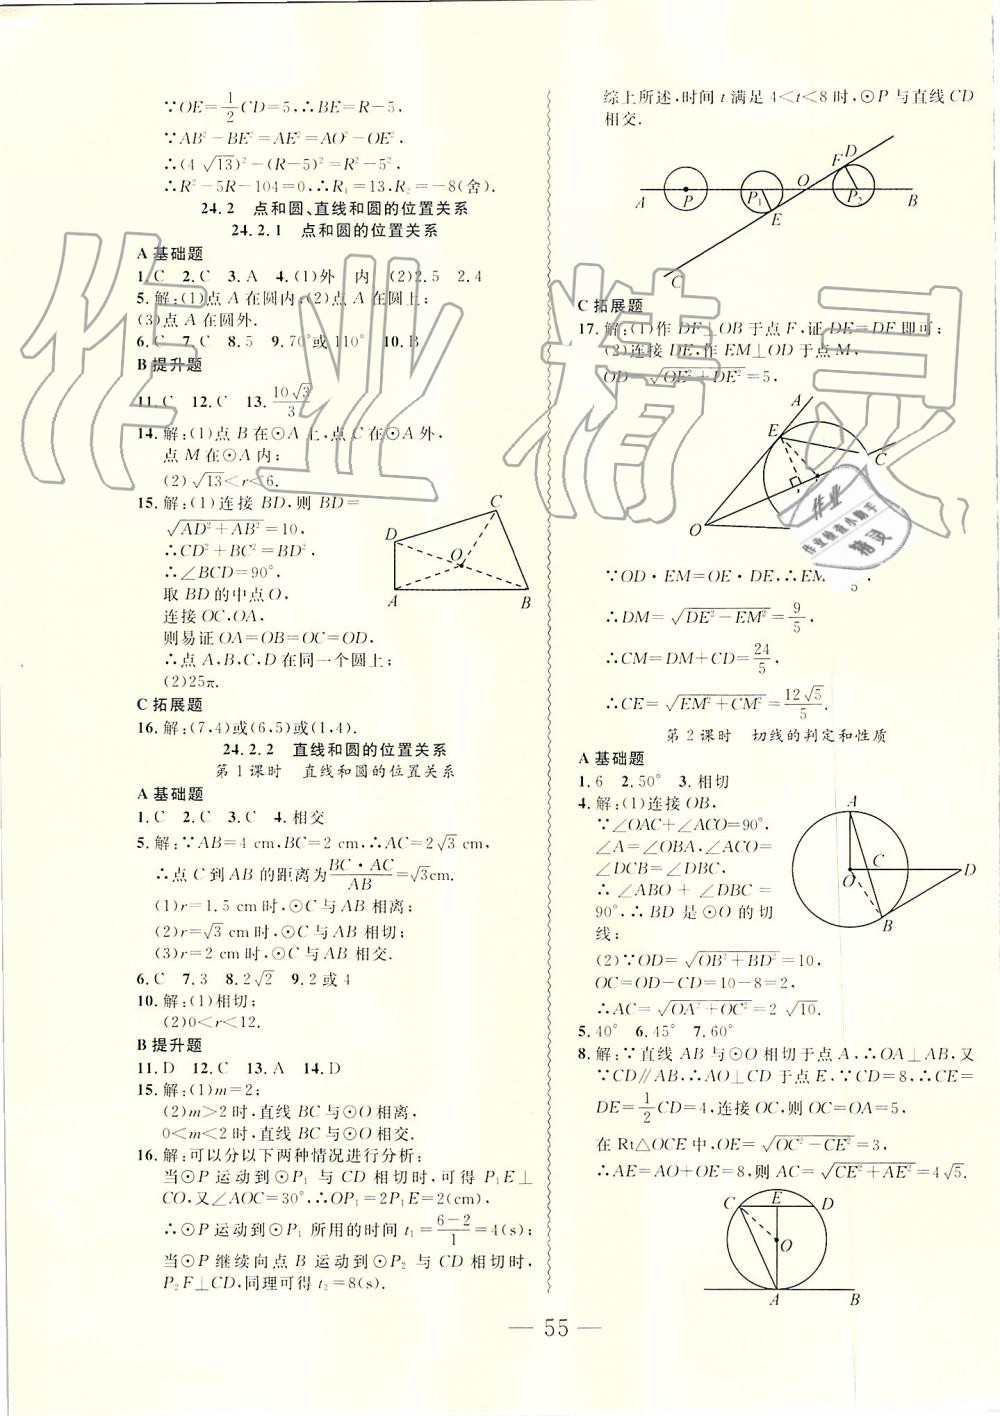 ∵OE=1/2CD=5,∴BE=R-5,
∵AB²-BE²=AE²=AO²-OE²,
∴(4√13)²-(R-5)²=R²-5²,
∴R²-5R-104=0,∴R₁=13,R₂=-8(舍).
24.2 点和圆、直线和圆的位置关系
24.2.1 点和圆的位置关系
A 基础题
1.C 2.C 3.A 4.(1)外 内 (2)2.5 2.4
5.解:(1)点A在圆内;(2)点A在圆上;
(3)点A在圆外.
6.C 7.C 8.5 9.70°或110° 10.B
B 提升题
11.C 12.C 13.10√3/3
14.解:(1)点B在⊙A上,点C在⊙A外,
点M在⊙A内;
(2)√13<r<6.
15.解:(1)连接BD,则BD=
√AD²+AB²=10,
∴CD²+BC²=BD²,
∴∠BCD=90°,
取BD的中点O,
连接OC,OA,
则易证OA=OB=OC=OD,
∴点A,B,C,D在同一个圆上;
(2)25π.
D C O A B
C 拓展题
16.解:(7,4)或(6,5)或(1,4).
24.2.2 直线和圆的位置关系
第1课时 直线和圆的位置关系
A 基础题
1.C 2.C 3.C 4.相交
5.解:∵AB=4 cm,BC=2 cm,∴AC=2√3 cm,
∴点C到AB的距离为BC·AC/AB=√3cm.
(1)r=1.5 cm时,⊙C与AB相离;
(2)r=√3 cm时,⊙C与AB相切;
(3)r=2 cm时,⊙C与AB相交.
6.C 7.3 8.2√2 9.2或4
10.解:(1)相切;
(2)0<r<12.
B 提升题
11.D 12.C 13.A 14.D
15.解:(1)m=2;
(2)m>2时,直线BC与⊙O相离,
0<m<2时,直线BC与⊙O相交.
16.解:可以分以下两种情况进行分析:
当⊙P运动到⊙P₁与CD相切时,可得P₁E⊥
CO,又∠AOC=30°,∴OP₁=2P₁E=2(cm),
∴⊙P运动到⊙P₁所用的时间t₁=6-2/1=4(s);
当⊙P继续向点B运动到⊙P₂与CD相切时,
P₂F⊥CD,同理可得t₂=8(s).
综上所述,时间t满足4<t<8时,⊙P与直线CD
相交.
A P P₁ E O F D P₂ B C
C 拓展题
17.解:(1)作DF⊥OB于点F,证DE=DF即可;
(2)连接DE,作EM⊥OD于点M,
OD=√OE²+DE²=5,
A E C O
∵OD·EM=OE·DE,∴EM
∴DM=√DE²-EM²=9/5,
∴CM=DM+CD=24/5,
∴CE=√EM²+CM²=12√5/5.
第2课时 切线的判定和性质
A 基础题
1.6 2.50° 3.相切
4.解:(1)连接OB,
∵∠OAC+∠ACO=90°,
∠A=∠OBA,∠ACO=
∠DCB=∠DBC,
∴∠ABO+∠DBC=
90°,∴BD是⊙O的切
线;
(2)∵OD=√OB²+BD²=10,
OC=OD-CD=10-8=2,
∴AC=√OA²+OC²=2√10.
A C D O B
5.40° 6.45° 7.60°
8.解:∵直线AB与⊙O相切于点A,∴OA⊥AB,又
∵CD∥AB,∴AO⊥CD于点E,∵CD=8,∴CE=
DE=1/2CD=4,连接OC,则OC=OA=5,
在Rt△OCE中,OE=√OC²-CE²=3,
∴AE=AO+OE=8,则AC=√CE²+AE²=4√5.
C E D O A B
— 55 —
作业精灵
作业
作业检查小助手
精灵